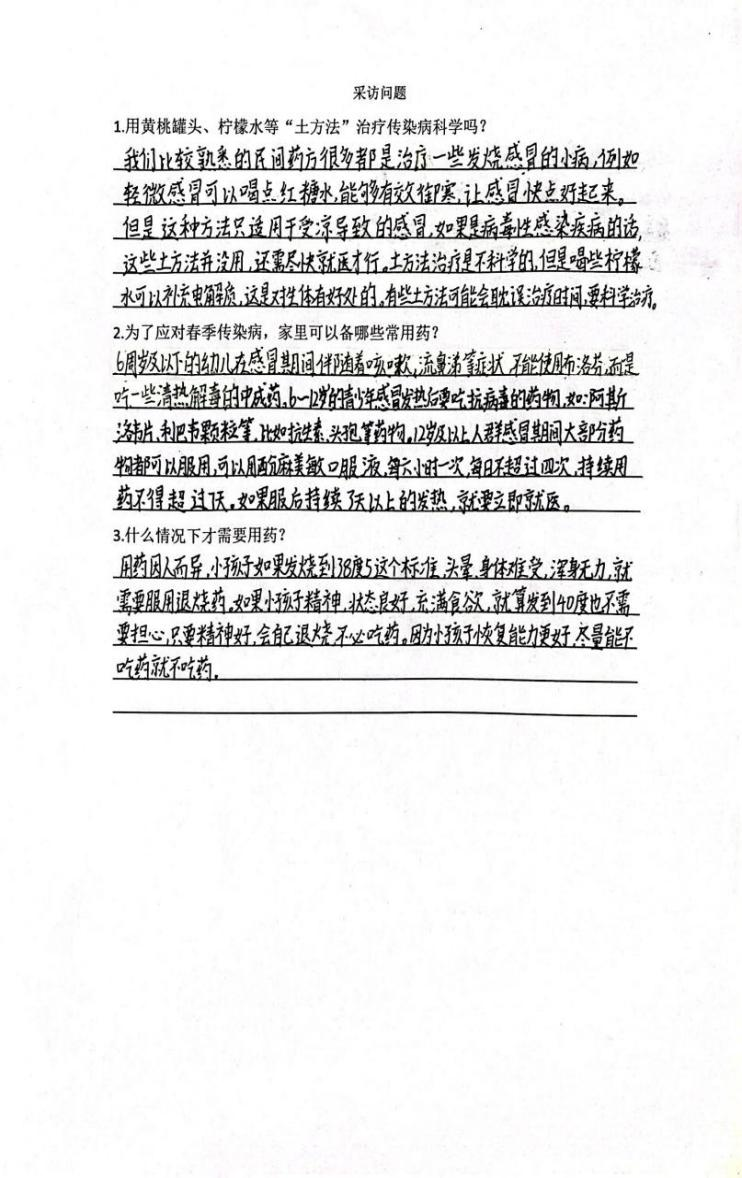 采访问题
1.用黄桃罐头、柠檬水等“土方法”治疗传染病科学吗？
我们比较熟悉的民间药方很多都是治疗一些发烧感冒的小病,例如
轻微感冒可以喝点红糖水,能够有效御寒,让感冒快点好起来。
但是这种方法只适用于受凉导致的感冒,如果是病毒性感染疾病的话,
这些土方法并没用,还需尽快就医才行。土方法治疗是不科学的,但是喝些柠檬
水可以补充电解质,这是对生体有好处的。有些土方法可能会耽误治疗时间,要科学治疗。
2.为了应对春季传染病，家里可以备哪些常用药？
6周岁及以下的幼儿在感冒期间伴随着咳嗽,流鼻涕等症状 不能使用布洛芬,而是
吃一些清热解毒的中成药。6~12岁的青少年感冒发热后要吃抗病毒的药物,如:阿斯
洛韦片,利巴韦颗粒等,比如抗生素,头孢等药物。12岁及以上人群感冒期间大部分药
物都可以服用,可以用酚麻美敏口服液,每六小时一次,每日不超过四次,持续用
药不得超过7天。如果服后持续3天以上的发热,就要立即就医。
3.什么情况下才需要用药？
用药因人而异,小孩子如果发烧到38度5这个标准,头晕,身体难受,浑身无力,就
需要服用退烧药,如果小孩子精神,状态良好,充满食欲,就算发到40度也不需
要担心,只要精神好,会自己退烧,不必吃药。因为小孩子恢复能力更好,尽量能不
吃药就不吃药。